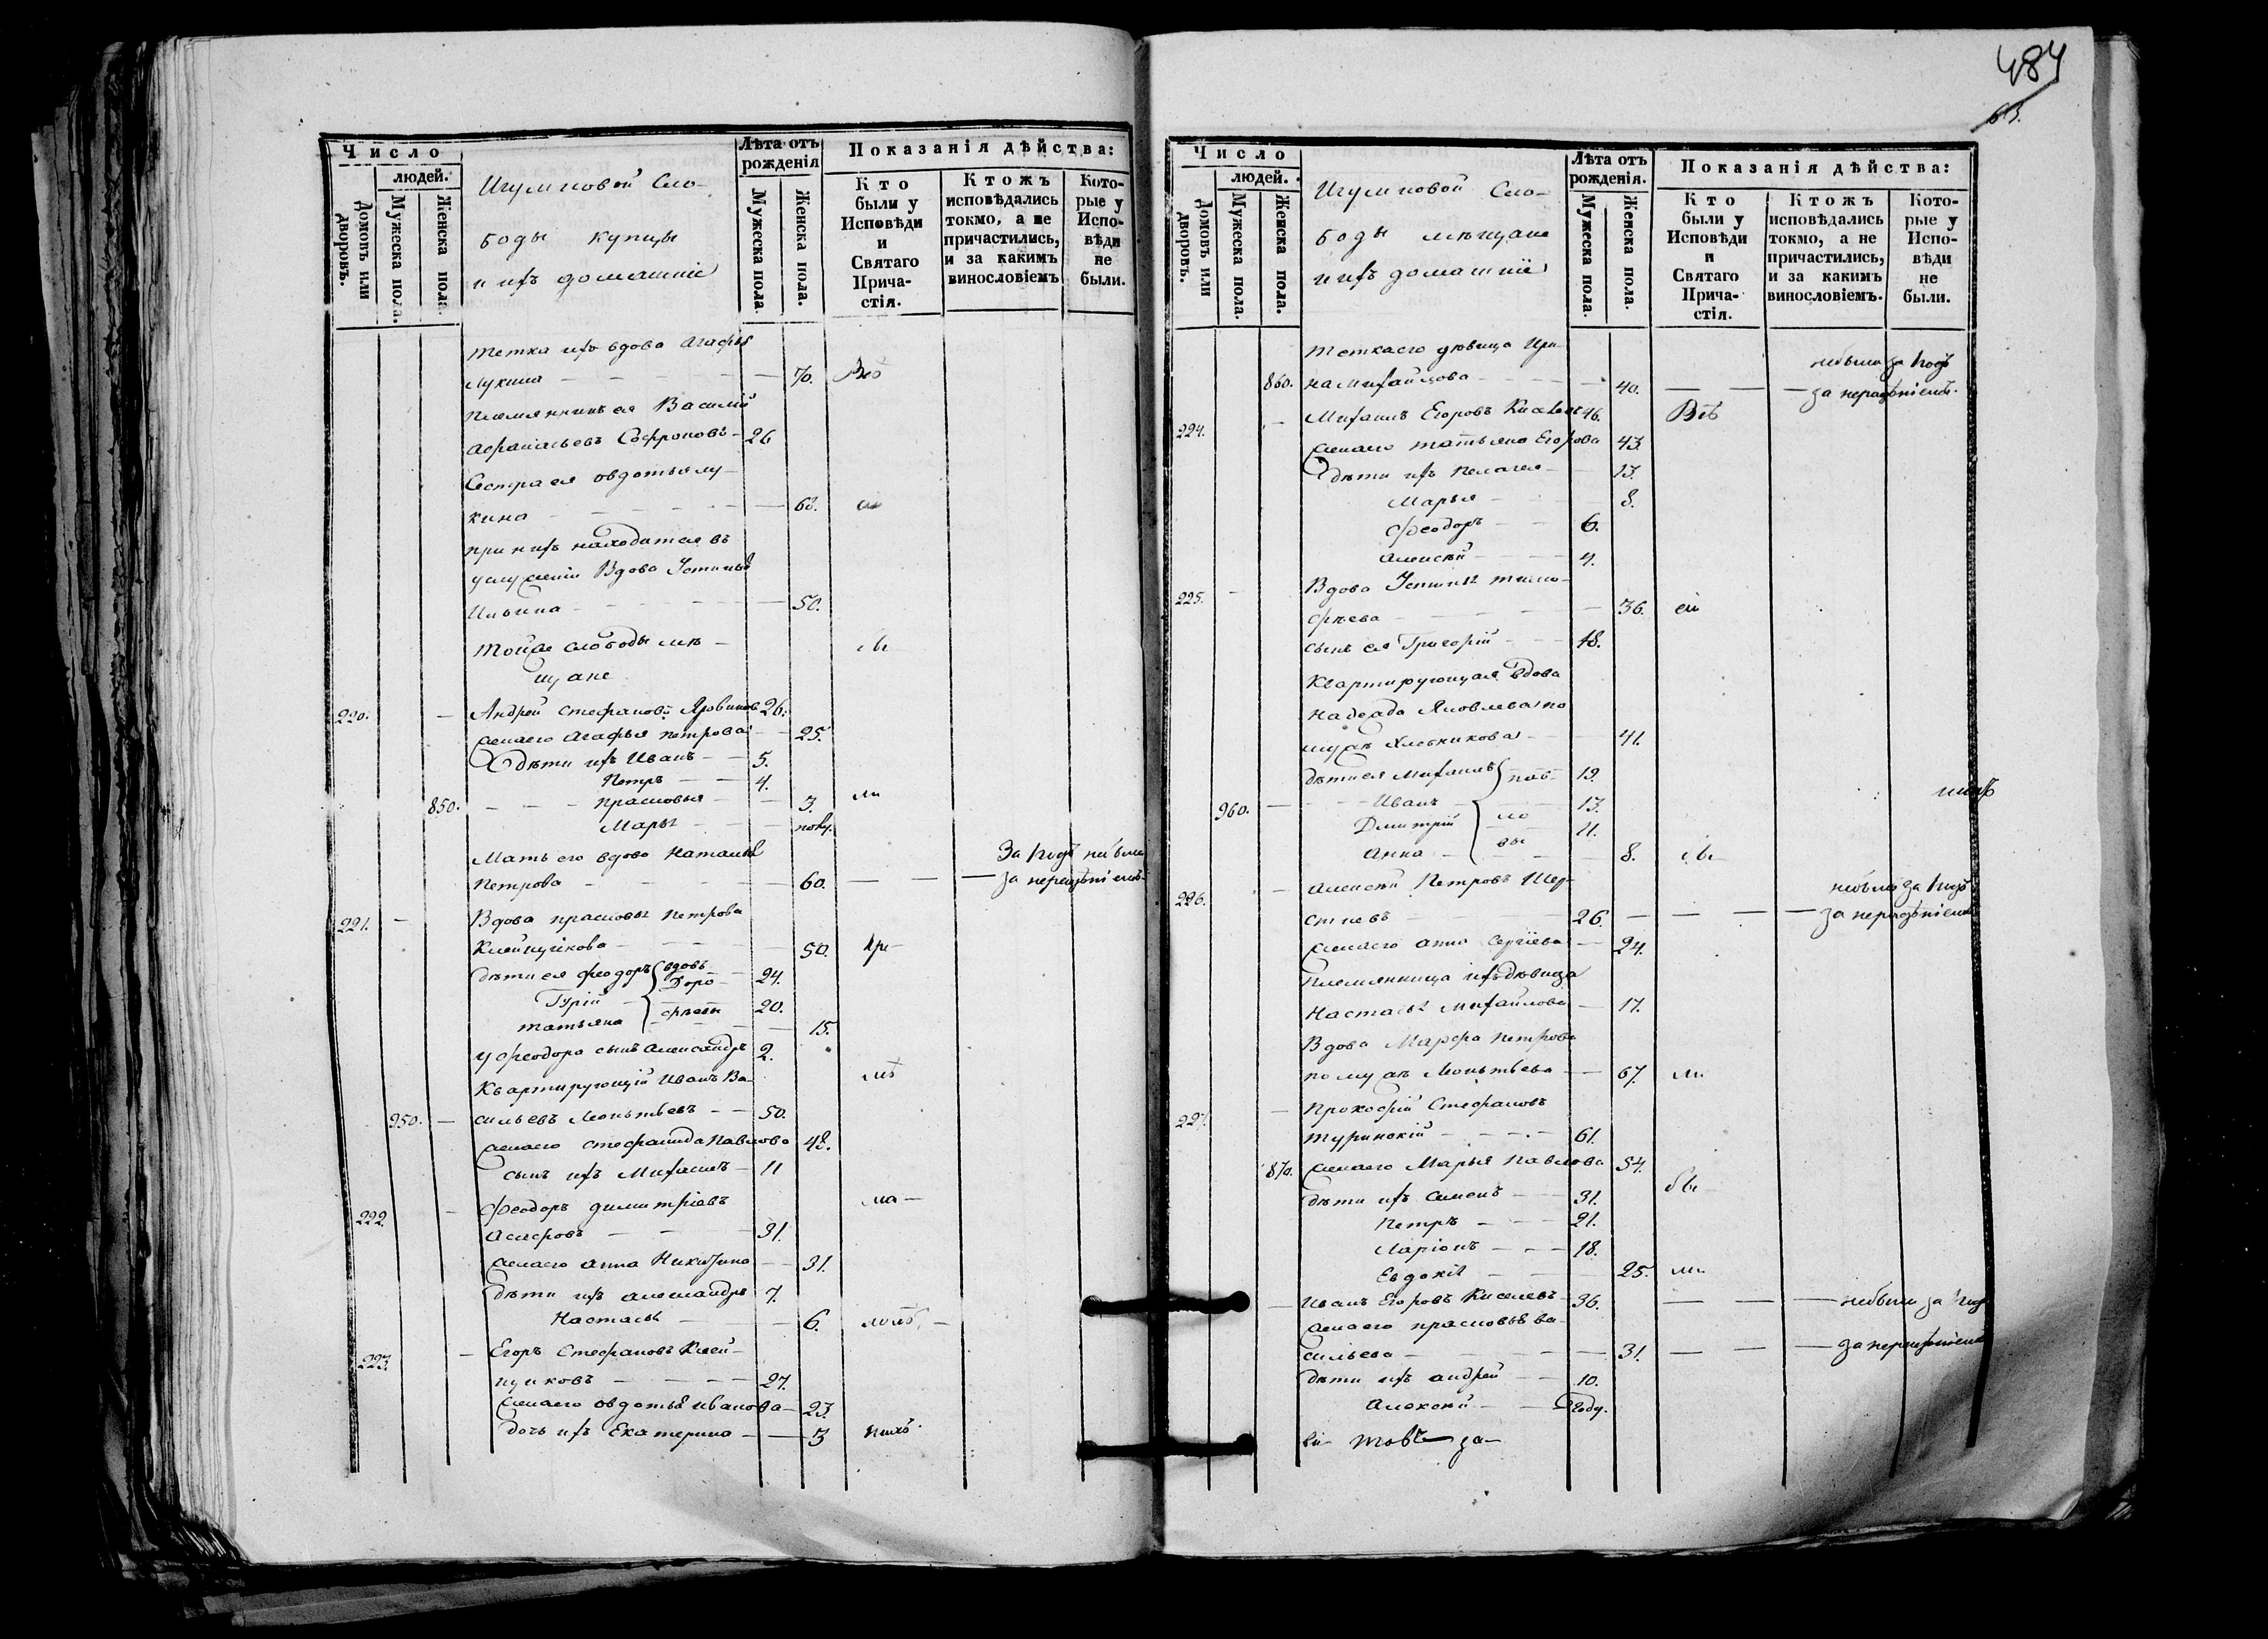 484
63.
Число
людей.
Домовъ или дворовъ.
Мужеска пола.
Женска пола.
Игумновой Сло-
боды купцы
и ихъ домашніе
Лѣта отъ рожденія
Мужеска пола
Женска пола.
Показанія дѣйства:
Кто были у Исповѣди и Святаго Прича-стія.
Ктожъ исповѣдались токмо, а не причастились, и за какимъ винословіемъ
Кото-рые у Испо-вѣди не были.
тетка ихъ вдова Агафья
Лукина 70. Всѣ
племянникъ ея Василій
Афанасьевъ Софроновъ 26
Сестра ея Овдотья Лу-
кина 63.
при нихъ находится въ
услуженіи Вдова Устинья
Ильина 50.
Тойже слободы мѣ-
щане
220. Андрей Стефановъ 26.
жена его Агафья Петрова 25.
дѣти ихъ Иванъ 5.
Петръ 4.
850. Прасковья 3.
Марья полу.
Мать его вдова Наталья За Ісп. небыла
Петрова 60. за нерадѣніемъ
221. Вдова Прасковья Петрова
Клейнушкова 50.
дѣти ея Феодоръ вдовъ 24.
Гурій Доро- 20.
Татьяна фѣевы 15.
у Феодора сынъ Александръ 2.
Квартирующій Иванъ Ва-
950. сильевъ Леонтьевъ 50.
жена его Стефанида Павлова 48.
сынъ ихъ Михаилъ 11
222 Феодоръ Димитріевъ
31.
жена его Анна Никитина 31.
дѣти ихъ Александръ 7.
Настасья 6.
223. Егоръ Стефановъ Клей-
нушковъ 27.
жена его Овдотья Иванова 23.
дочь ихъ Екатерина 3
Число
людей.
Домовъ или дворовъ.
Мужеска пола.
Женска пола.
Игумновой Сло-
боды мѣщане
и ихъ домашніе
Лѣта отъ рожденія.
Мужеска пола.
Женска пола.
Показанія дѣйства:
Кто были у Исповѣди и Святаго Прича-стія.
Ктожъ исповѣдались токмо, а не причастились, и за какимъ винословіемъ.
Кото-рые у Испо-вѣди не были.
Тетка его дѣвица Ири-
860. на Михайлова 40. за нерадѣніемъ.
224. Михаилъ Егоровъ Киселевъ 46. Всѣ
жена его Татьяна Егорова 43.
дѣти ихъ Пелагея 13.
Марья 8.
Феодоръ 6.
Алексѣй 4.
225. Вдова Устинья Тимо-
фѣева 36.
сынъ ея Григорій 18.
Квартирующая Вдова
Надежда Яковлева по
мужѣ Хлебникова 41.
дѣти ея Михаилъ Пав- 19.
960. Иванъ 13.
Дмитрій ло 11.
Анна вы 8.
226. Алексѣй Петровъ Шер-
стневъ 26. за нерадѣніемъ
жена его Анна Сергіева 24.
племянница ихъ дѣвица
Настасья Михайлова 17.
Вдова Марфа Петрова
по мужѣ Леонтьева 67.
227. Прокофій Стефановъ
Туринскій 61.
870. жена его Марья Павлова 54.
дѣти ихъ Симеонъ 31.
Петръ 21.
Ларіонъ 18.
Евдокія 25.
Иванъ Егоровъ Киселевъ 36. небыли за
жена его Прасковья Ва-
сильева 31. за нерадѣніемъ
дѣти ихъ Андрей 10.
Алексѣй году.